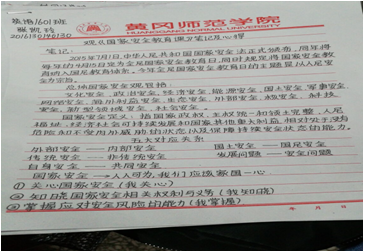 英语1601班
黄冈师范学院
HUANGGANG NORMAL UNIVERSITY
201613014013
观《国家安全教育课》笔记及心得
笔记:
2015年7月1日,中华人民共和国国家安全法正式颁布,同年将
每年的4月15日定为全民国家安全教育日,同时规定将国家安全教
育纳入国民教育体系。今年全民国家安全教育日的主题是以人民安
全为宗旨。
总体国家安全观提括:
文化安全、政治安全、经济安全、能源安全、国土安全、军事安全
网络安全、海外利益安全、生态安全、外部安全、核安全、科技
安全、新型领域安全、社会安全。
国家安全定义:指国家政权、主权统一和领土完整、人民
福祉、经济社会可持续发展和国家其他重大利益相对处于没有
危险和不受内外威胁的状态以及保障持续安全状态的能力。
五大对应关系
外部安全——内部安全 国土安全——国民安全
传统安全——非传统安全 发展问题——安全问题
自身安全——共同安全
国家安全→人人可为,我们应该家国一心
① 关心国家安全(我关心)
② 知晓国家安全相关权利与义务(我知晓)
③ 掌握应对安全风险的能力(我掌握)
年 月 日